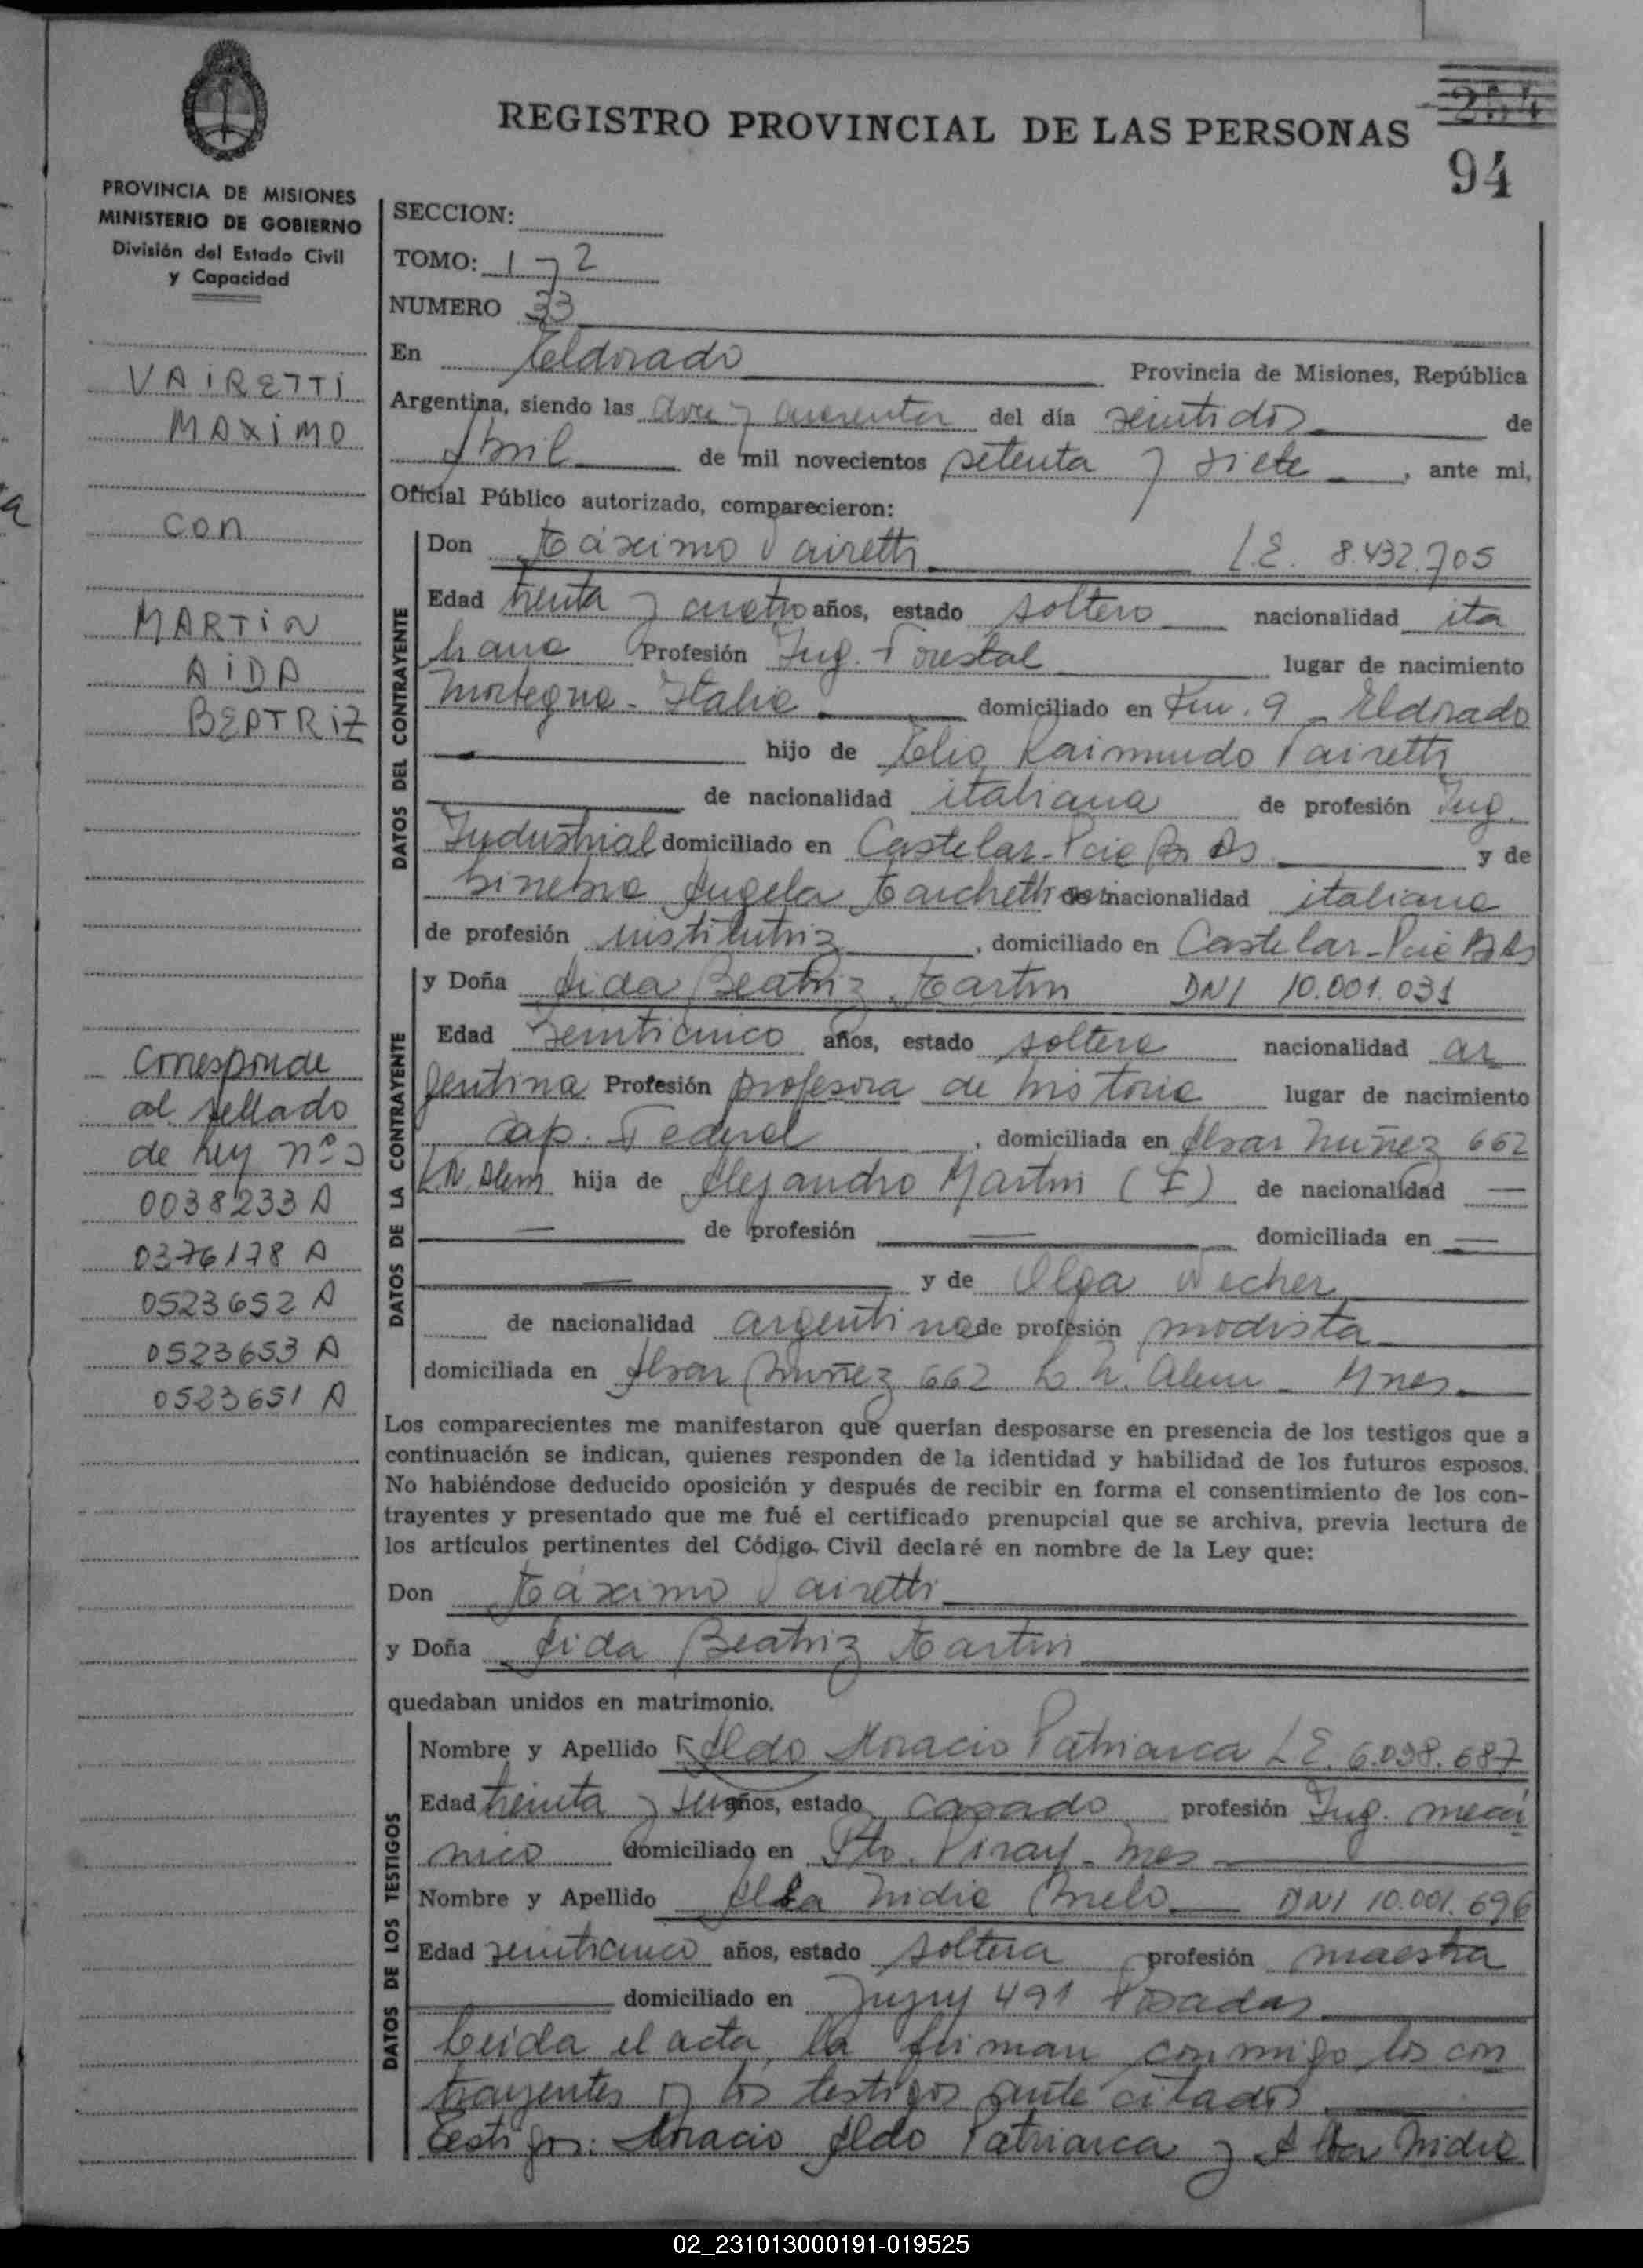 REGISTRO PROVINCIAL DE LAS PERSONAS
254
94
PROVINCIA DE MISIONES
MINISTERIO DE GOBIERNO
División del Estado Civil
y Capacidad
VAIRETTI
MAXIMO
con
MARTIN
AIDA
BEATRIZ
Corresponde
al sellado
de ley nos
0038233 A
0376178 A
0523652 A
0523653 A
0523651 A
SECCION:
TOMO: 1 y 2
NUMERO 33
En Eldorado Provincia de Misiones, República
Argentina, siendo las doce y cuarenta del día veintidos de
Abril de mil novecientos setenta y siete, ante mi,
Oficial Público autorizado, comparecieron:
DATOS DEL CONTRAYENTE
Don Máximo Vairetti L.E. 8.432.705
Edad treinta y cuatro años, estado soltero nacionalidad ita
liana Profesión Ing. Forestal lugar de nacimiento
Morbegno - Italia domiciliado en Km. 9 - Eldorado
hijo de Elio Raimundo Vairetti
de nacionalidad italiana de profesión Ing.
Industrial domiciliado en Castelar - Pcia Bs As y de
Angela de nacionalidad italiana
de profesión institutriz, domiciliado en Castelar - Pcia Bs As
DATOS DE LA CONTRAYENTE
y Doña Aida Beatriz Martin DNI 10.001.031
Edad Veinticinco años, estado soltera nacionalidad ar
gentina Profesión profesora de historia lugar de nacimiento
Cap. Federal, domiciliada en Alvar Nuñez 662
L.N. Alem hija de Alejandro Martin (F) de nacionalidad —
— de profesión — domiciliada en —
— y de Olga Wecher
de nacionalidad argentina de profesión modista
domiciliada en Alvar Nuñez 662 L. N. Alem - Mnes.
Los comparecientes me manifestaron que querían desposarse en presencia de los testigos que a
continuación se indican, quienes responden de la identidad y habilidad de los futuros esposos.
No habiéndose deducido oposición y después de recibir en forma el consentimiento de los con-
trayentes y presentado que me fué el certificado prenupcial que se archiva, previa lectura de
los artículos pertinentes del Código Civil declaré en nombre de la Ley que:
Don Máximo Vairetti
y Doña Aida Beatriz Martin
quedaban unidos en matrimonio.
DATOS DE LOS TESTIGOS
Nombre y Apellido Aldo Horacio Patriarca L.E. 6.038.687
Edad treinta y seis años, estado casado profesión Ing. mecá
nico domiciliado en Pto. Piray - Mnes
Nombre y Apellido Alba Nidia Melo DNI 10.001.696
Edad veinticinco años, estado soltera profesión maestra
domiciliado en Jujuy 491 Posadas
Leida el acta, la firman conmigo los con
trayentes y los testigos ante citados
Testigos: Horacio Aldo Patriarca y Alba Nidia
02_231013000191-019525